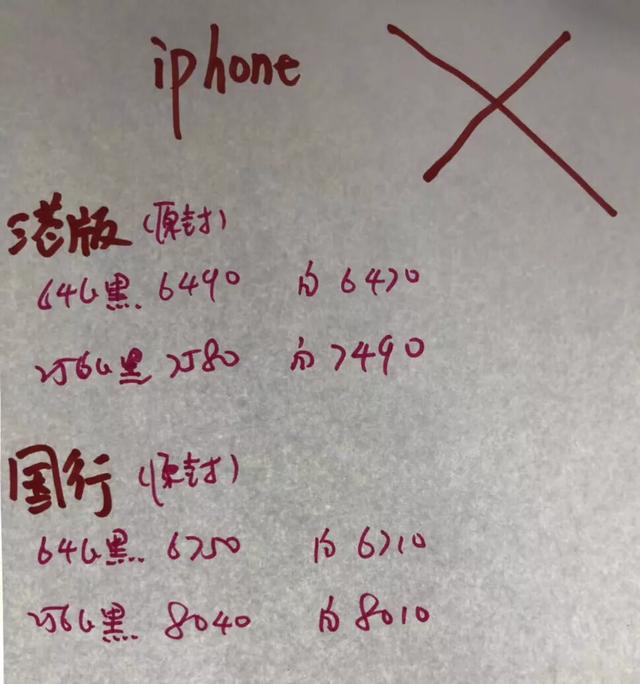 iphone X
港版 (原封)
64G黑 6490 白 6470
256G黑 7580 白 7490
国行 (原封)
64G黑 6750 白 6710
256G黑 8040 白 8010